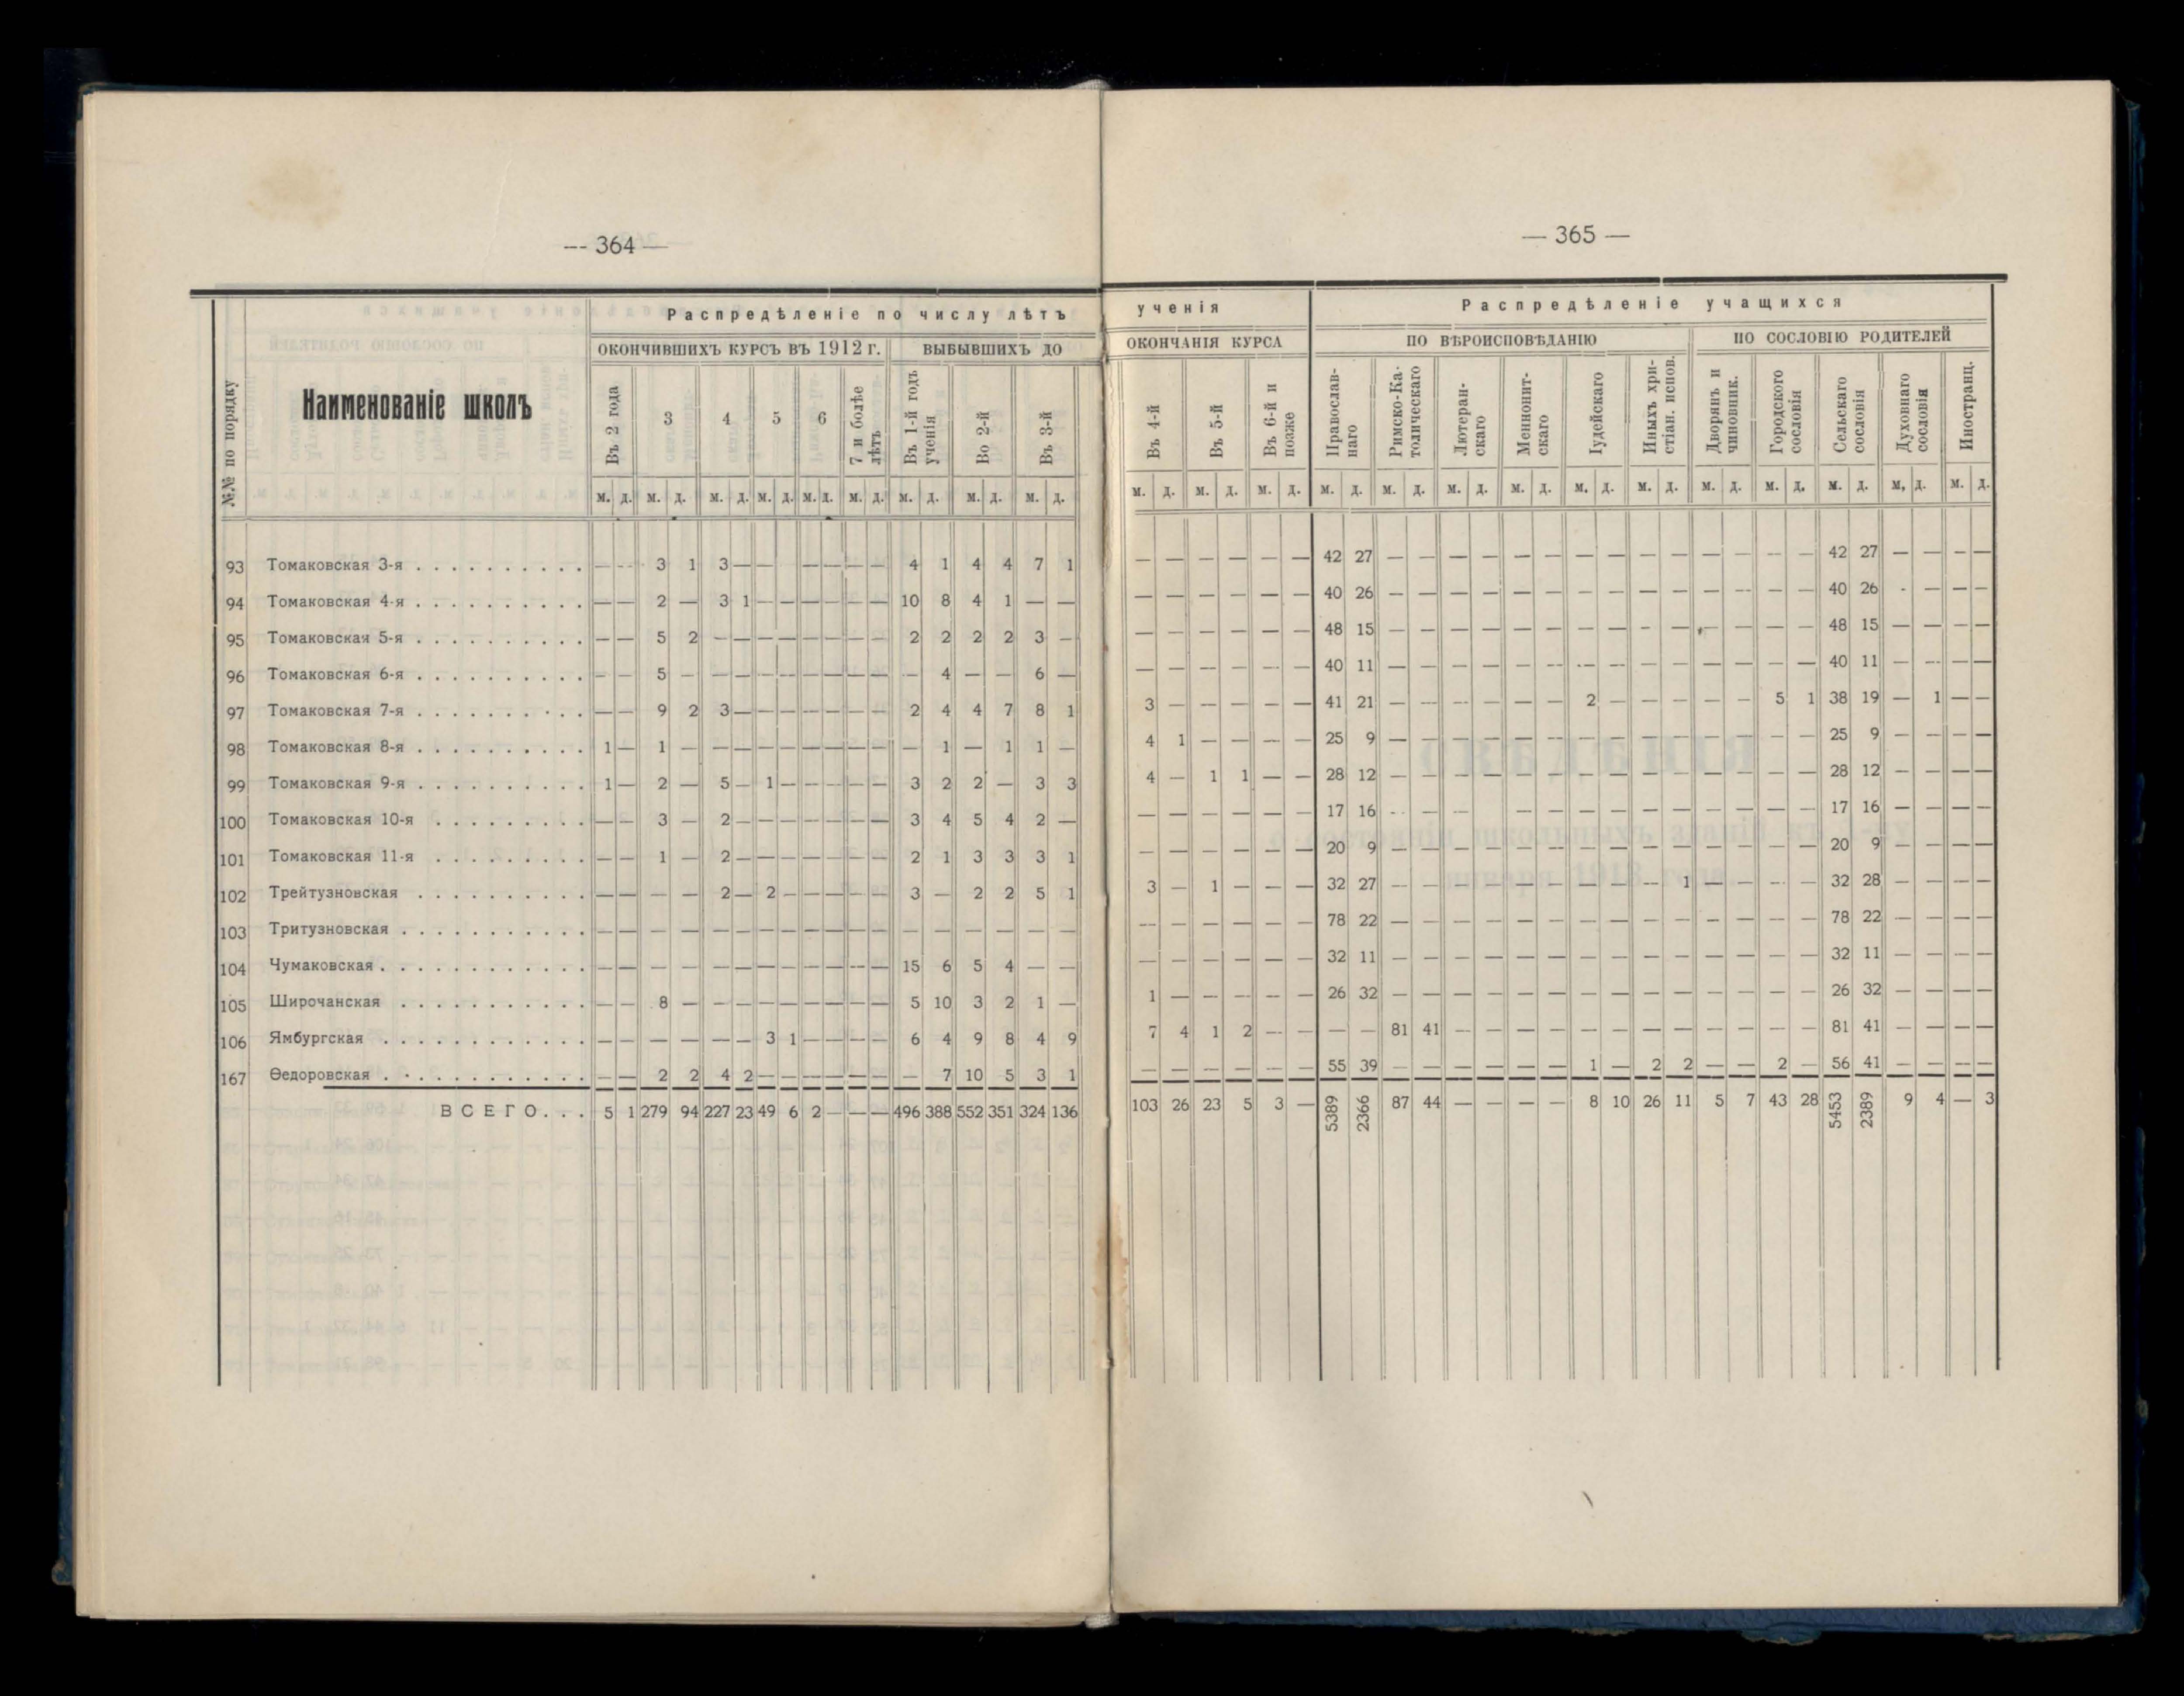 — 364 —
Распредѣленіе по числу лѣтъ
ОКОНЧИВШИХЪ КУРСЪ ВЪ 1912 г. ВЫБЫВШИХЪ ДО
№№ по порядку Наименованіе школъ Въ 2 года 3 4 5 6 7 и болѣе лѣтъ Въ 1-й годъ ученія Во 2-й Въ 3-й
м. д. м. д. м. д. м. д. м. д. м. д. м. д. м. д. м. д.
93 Томаковская 3-я . . . . . . . . . . — — 3 1 3 — — — — — — 4 1 4 4 7 1
94 Томаковская 4-я . . . . . . . . . . — — 2 — 3 1 — — — — — — 10 8 4 1 — —
95 Томаковская 5-я . . . . . . . . . . — — 5 2 — — — — — — — — 2 2 2 2 3 —
96 Томаковская 6-я . . . . . . . . . . — — 5 — — — — — — — — — — 4 — — 6 —
97 Томаковская 7-я . . . . . . . . . . — — 9 2 3 — — — — — — — 2 4 4 7 8 1
98 Томаковская 8-я . . . . . . . . . . 1 — 1 — — — — — — — — — — 1 — 1 1 —
99 Томаковская 9-я . . . . . . . . . . 1 — 2 — 5 — 1 — — — — — 3 2 2 — 3 3
100 Томаковская 10-я . . . . . . . . . — — 3 — 2 — — — — — — — 3 4 5 4 2 —
101 Томаковская 11-я . . . . . . . . . — — 1 — 2 — — — — — — — 2 1 3 3 3 1
102 Трейтузновская . . . . . . . . . . — — — — 2 — 2 — — — — — 3 — 2 2 5 1
103 Тритузновская . . . . . . . . . . . — — — — — — — — — — — — — — — — — —
104 Чумаковская . . . . . . . . . . . . — — — — — — — — — — — — 15 6 5 4 — —
105 Широчанская . . . . . . . . . . . — — 8 — — — — — — — — — 5 10 3 2 1 —
106 Ямбургская . . . . . . . . . . . . — — — — — — 3 1 — — — — 6 4 9 8 4 9
167 Ѳедоровская . . . . . . . . . . . . — — 2 2 4 2 — — — — — — — 7 10 5 3 1
ВСЕГО. . . 5 1 279 94 227 23 49 6 2 — — — 496 388 552 351 324 136
— 365 —
ученія Распредѣленіе учащихся
ОКОНЧАНІЯ КУРСА ПО ВѢРОИСПОВѢДАНІЮ ПО СОСЛОВІЮ РОДИТЕЛЕЙ
Въ 4-й Въ 5-й Въ 6-й и позже Православнаго Римско-Католическаго Лютеранскаго Меннонитскаго Іудейскаго Иныхъ христіан. испов. Дворянъ и чиновник. Городского сословія Сельскаго сословія Духовнаго сословія Иностранц.
м. д. м. д. м. д. м. д. м. д. м. д. м. д. м. д. м. д. м. д. м. д. м. д. м, д. м. д.
— — — — — — 42 27 — — — — — — — — — — — — — — 42 27 — — — —
— — — — — — 40 26 — — — — — — — — — — — — — — 40 26 - — — —
— — — — — — 48 15 — — — — — — — — — — — — — — 48 15 — — — —
— — — — — — 40 11 — — — — — — — — — — — — — — 40 11 — — — —
3 — — — — — 41 21 — — — — — — 2 — — — — — 5 1 38 19 — 1 — —
4 1 — — — — 25 9 — — — — — — — — — — — — — — 25 9 — — — —
4 — 1 1 — — 28 12 — — — — — — — — — — — — — — 28 12 — — — —
— — — — — — 17 16 — — — — — — — — — — — — — 17 16 — — — —
— — — — — — 20 9 — — — — — — — — — — — — — — 20 9 — — — —
3 — 1 — — — 32 27 — — — — — — — — — 1 — — — — 32 28 — — — —
— — — — — — 78 22 — — — — — — — — — — — — — — 78 22 — — — —
— — — — — — 32 11 — — — — — — — — — — — — — — 32 11 — — — —
1 — — — — — 26 32 — — — — — — — — — — — — — — 26 32 — — — —
7 4 1 2 — — — — 81 41 — — — — — — — — — — — — 81 41 — — — —
— — — — — — 55 39 — — — — — — 1 — 2 2 — — 2 — 56 41 — — — —
103 26 23 5 3 — 5389 2366 87 44 — — — — 8 10 26 11 5 7 43 28 5453 2389 9 4 — 3